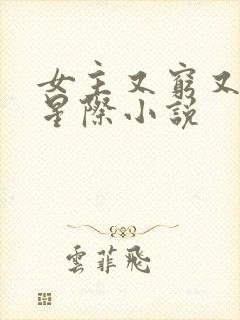 女主又窮又
星際小說
雲菲飛